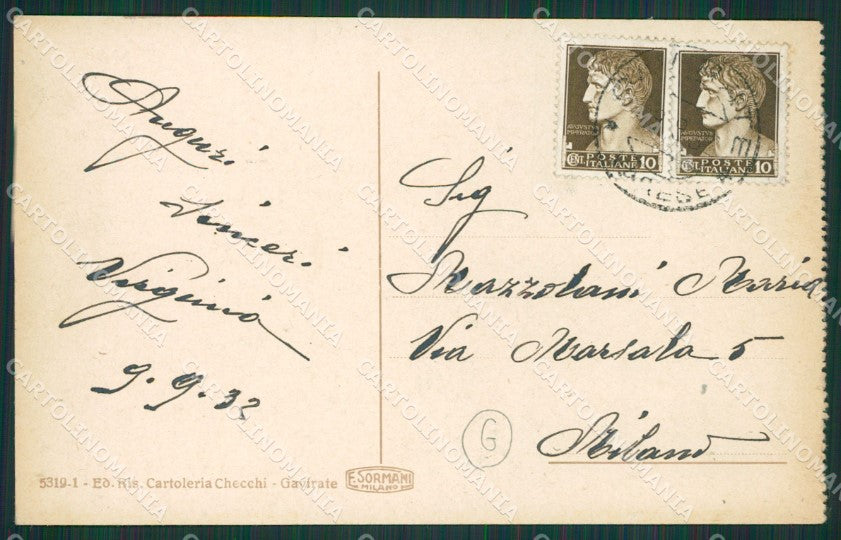 Auguri
Sinceri
Virginia
9.9.32
5319-1 - Ed. Ris. Cartoleria Checchi - Gavirate
F. SORMANI
MILANO
AVGVSTVS
IMPERATOR
POSTE
CENT. ITALIANE 10
AVGVSTVS
IMPERATOR
POSTE
CENT. ITALIANE 10
Sig
Mazzolani Maria
Via Marsala 5
Milano
G
CARTOLINOMANIA